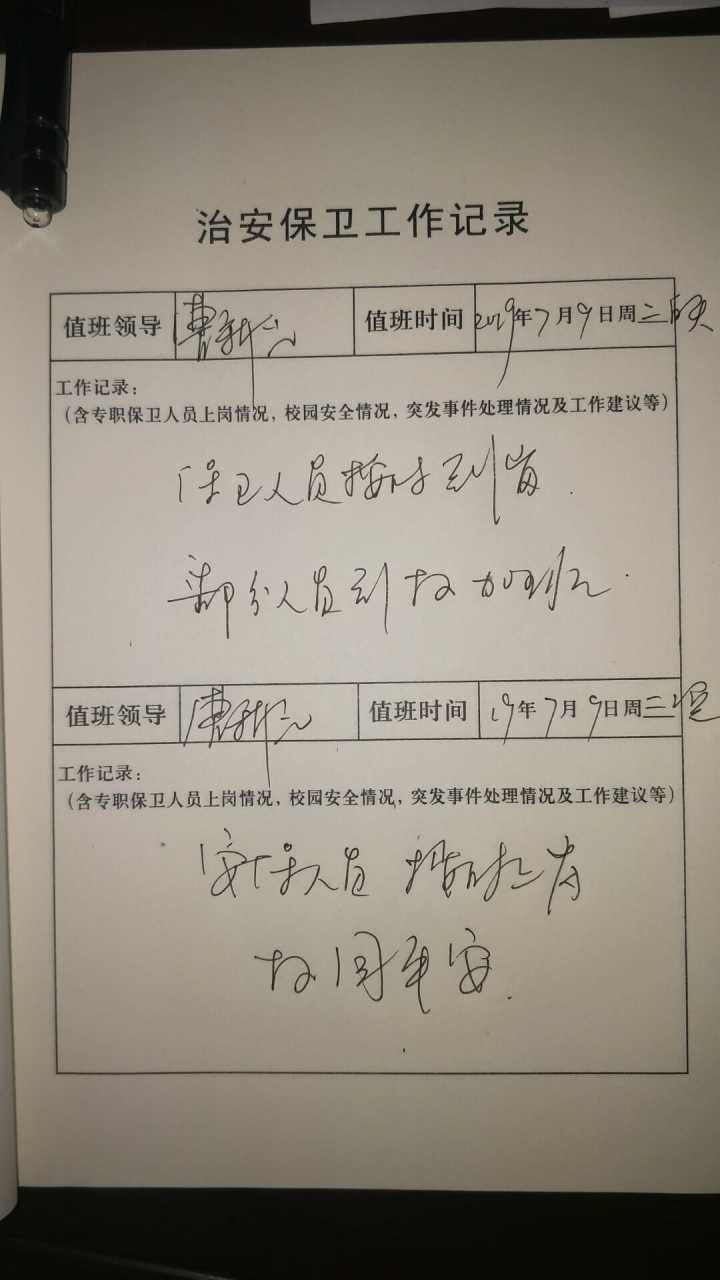 治安保卫工作记录
值班领导 曹 值班时间 2019年7月9日周二
工作记录：
（含专职保卫人员上岗情况，校园安全情况，突发事件处理情况及工作建议等）
保卫人员按时到岗.
部分人员到校加班.
值班领导 曹 值班时间 19年7月9日周三
工作记录：
（含专职保卫人员上岗情况，校园安全情况，突发事件处理情况及工作建议等）
安保人员按时上岗
校园平安.